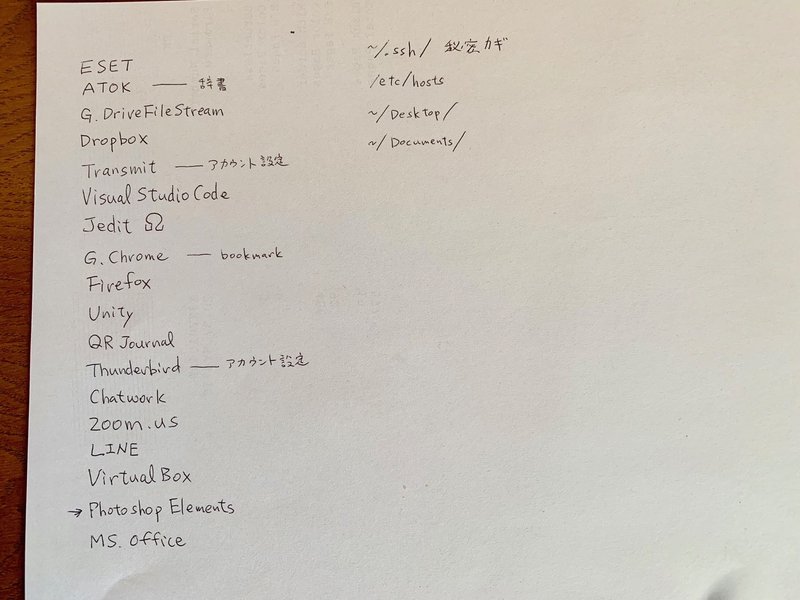 ESET
ATOK —— 辞書
G. DriveFileStream
Dropbox
Transmit —— アカウント設定
Visual Studio Code
Jedit Ω
G. Chrome —— bookmark
Firefox
Unity
QR Journal
Thunderbird —— アカウント設定
Chatwork
zoom.us
LINE
Virtual Box
→ Photoshop Elements
MS. Office
~/.ssh/ 秘密カギ
/etc/hosts
~/Desktop/
~/Documents/